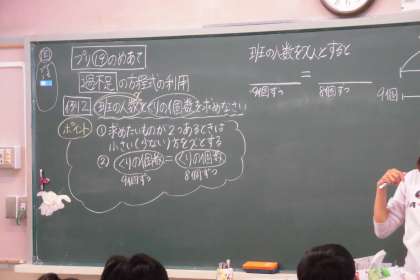 プリ⑲のめあて
過不足の方程式の利用
例2 班の人数とくりの個数を求めなさい
ポイント ①求めたいものが2つあるときは
小さい(少ない)方をxとする
② くりの個数 = くりの個数
9個ずつ 8個ずつ
班の人数をx人とすると
=
9個ずつ 8個ずつ
9個